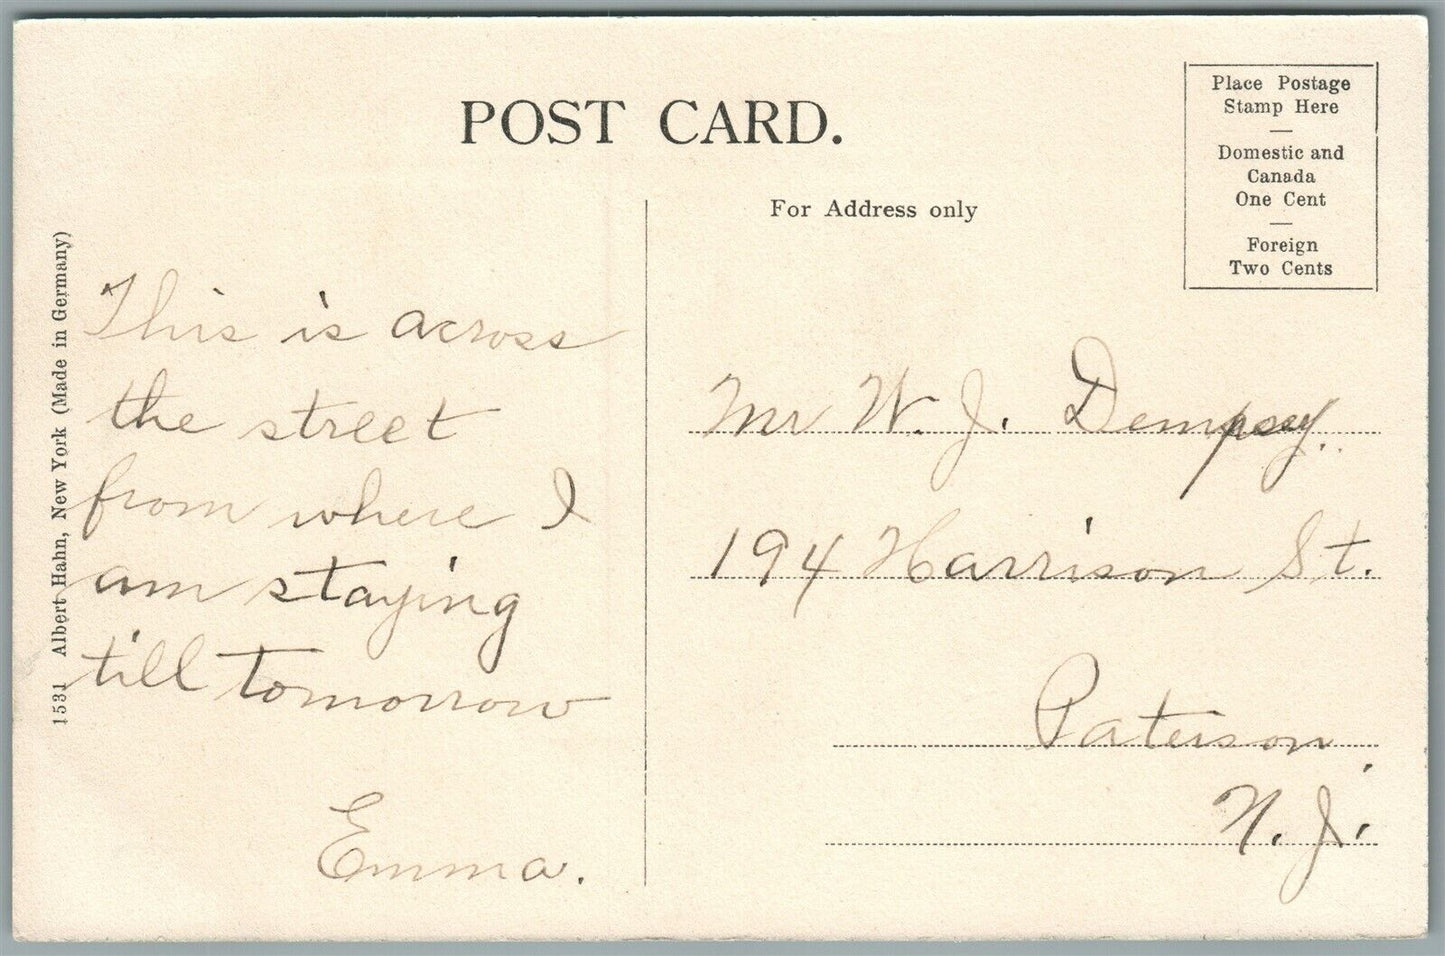 POST CARD.
Place Postage
Stamp Here
Domestic and
Canada
One Cent
Foreign
Two Cents
For Address only
1531 Albert Hahn, New York (Made in Germany)
This is across
the street
from where I
am staying
till tomorrow
Emma.
Mr W. J. Dempsey.
194 Harrison St.
Paterson
N. J.